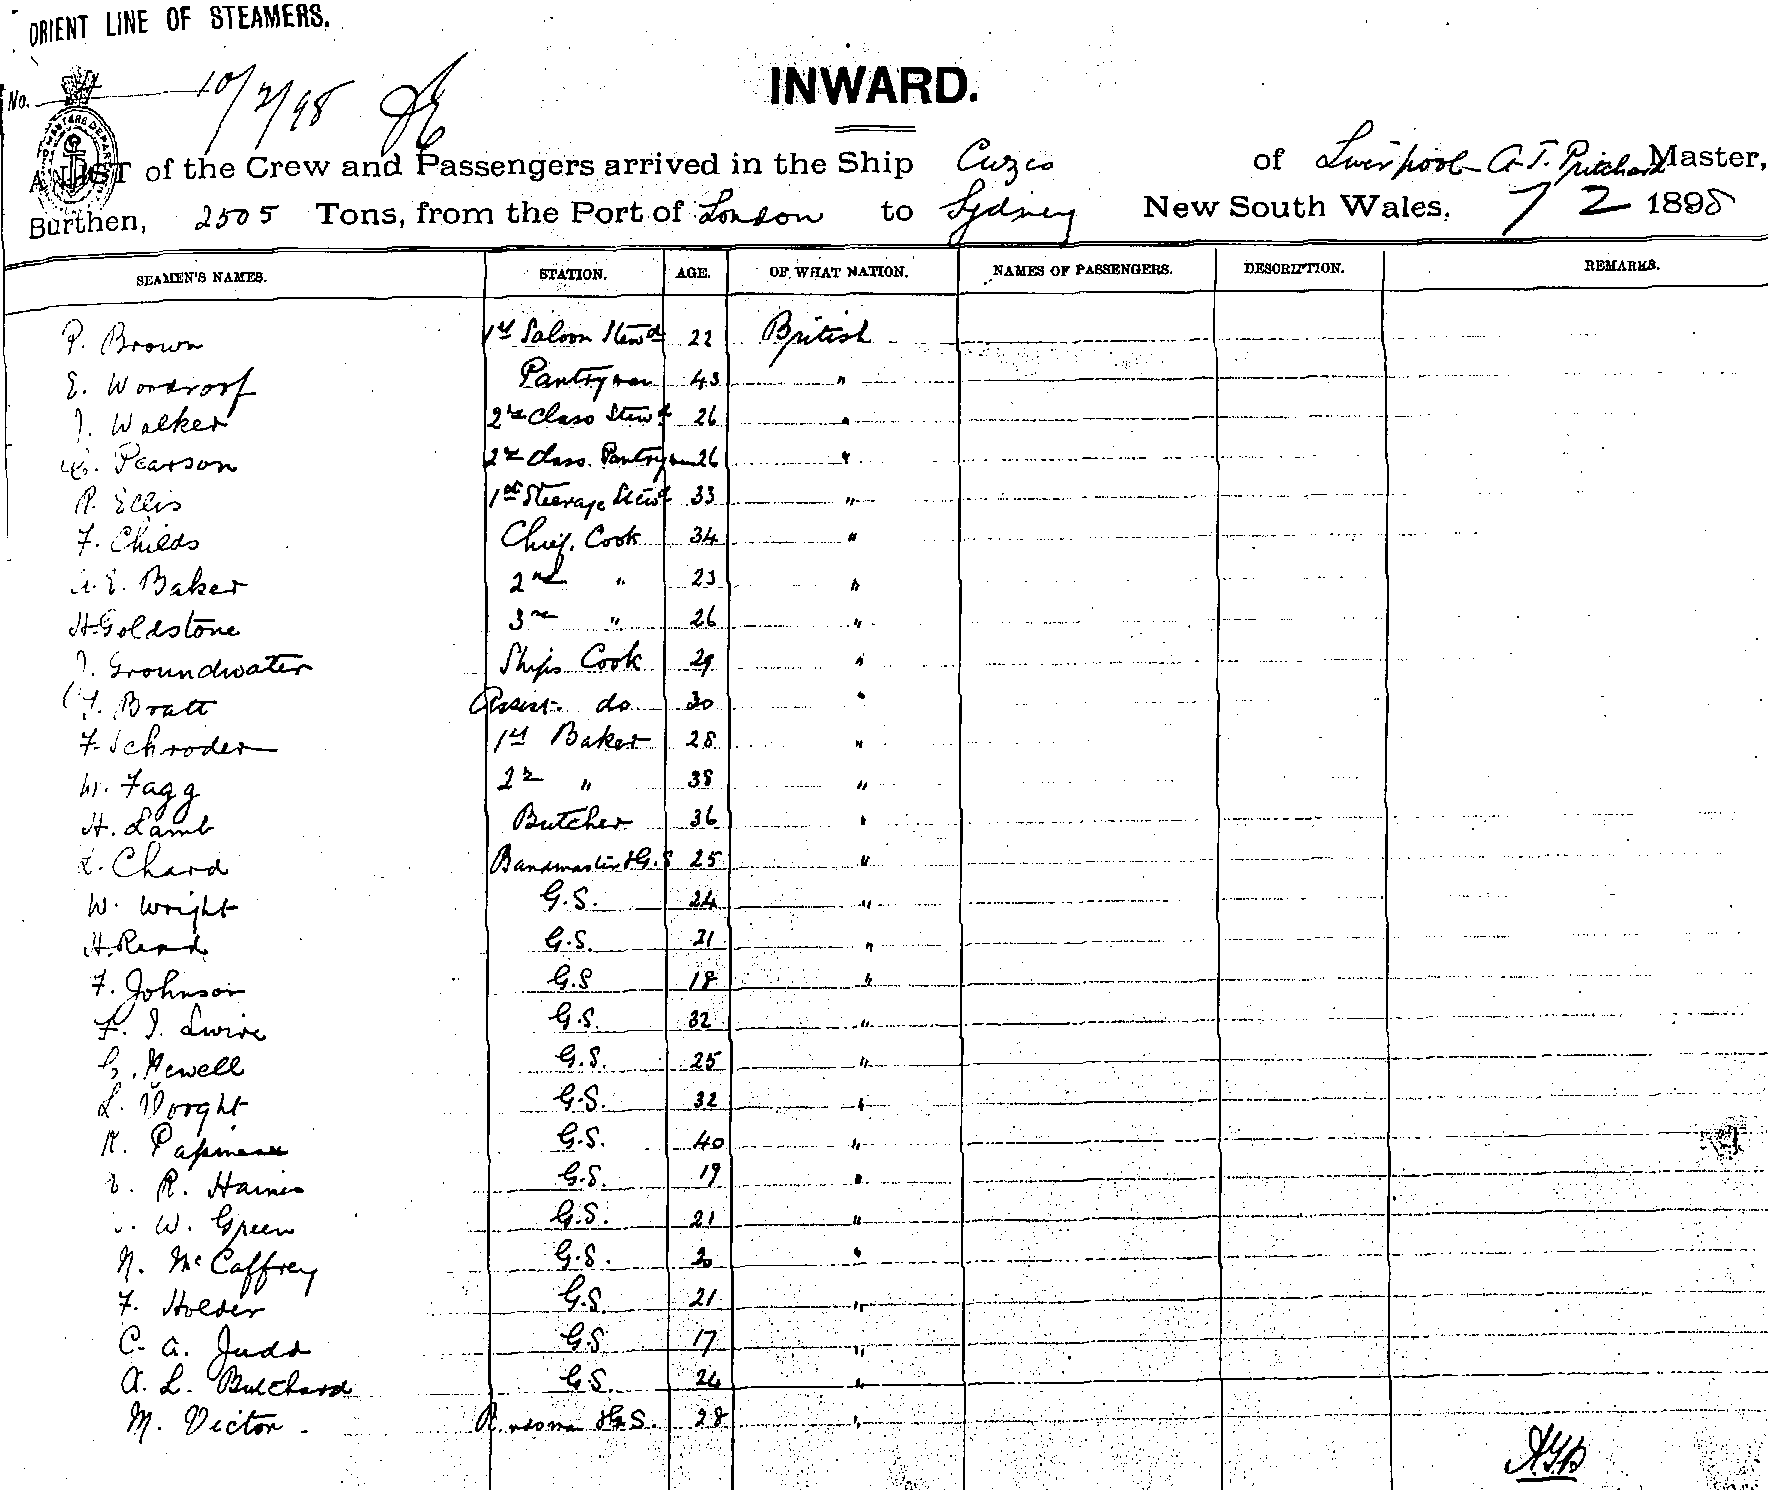 ORIENT LINE OF STEAMERS.
No. 10/2/98
INWARD.
A LIST of the Crew and Passengers arrived in the Ship Cuzco of Liverpool A. T. Pritchard Master,
Burthen, 2505 Tons, from the Port of London to Sydney New South Wales, 7 2 1898
SEAMEN'S NAMES. STATION. AGE. OF WHAT NATION. NAMES OF PASSENGERS. DESCRIPTION. REMARKS.
P. Brown 1st Saloon Stewd 22 British
E. Woodroof Pantryman 43 "
J. Walker 2nd Class Stewd 26 "
Pearson 2nd Class Pantryman 26 "
R. Ellis 1st Steerage Stewd 33 "
F. Childs Chief Cook 34 "
A. E. Baker 2nd " 23 "
H. Goldstone 3rd " 26 "
J. Groundwater Ships Cook 29 "
Bratt Assist do 30 "
F. Schroder 1st Baker 28 "
W. Fagg 2nd " 38 "
H. Lamb Butcher 36 "
L. Chard Bandmaster & G.S 25 "
W. Wright G.S. 24 "
H. Read G.S. 21 "
F. Johnson G.S 18 "
F. J. G.S. 32 "
G. Newell G.S. 25 "
L. G.S. 32 "
R. G.S. 40 "
R. Haines G.S. 19 "
W. Green G.S. 21 "
N. McCaffrey G.S. 20 "
F. Holder G.S. 21 "
C. A. Judd G.S 17 "
A. L. Butchard G.S. 24 "
M. Victor & G.S. 28 "